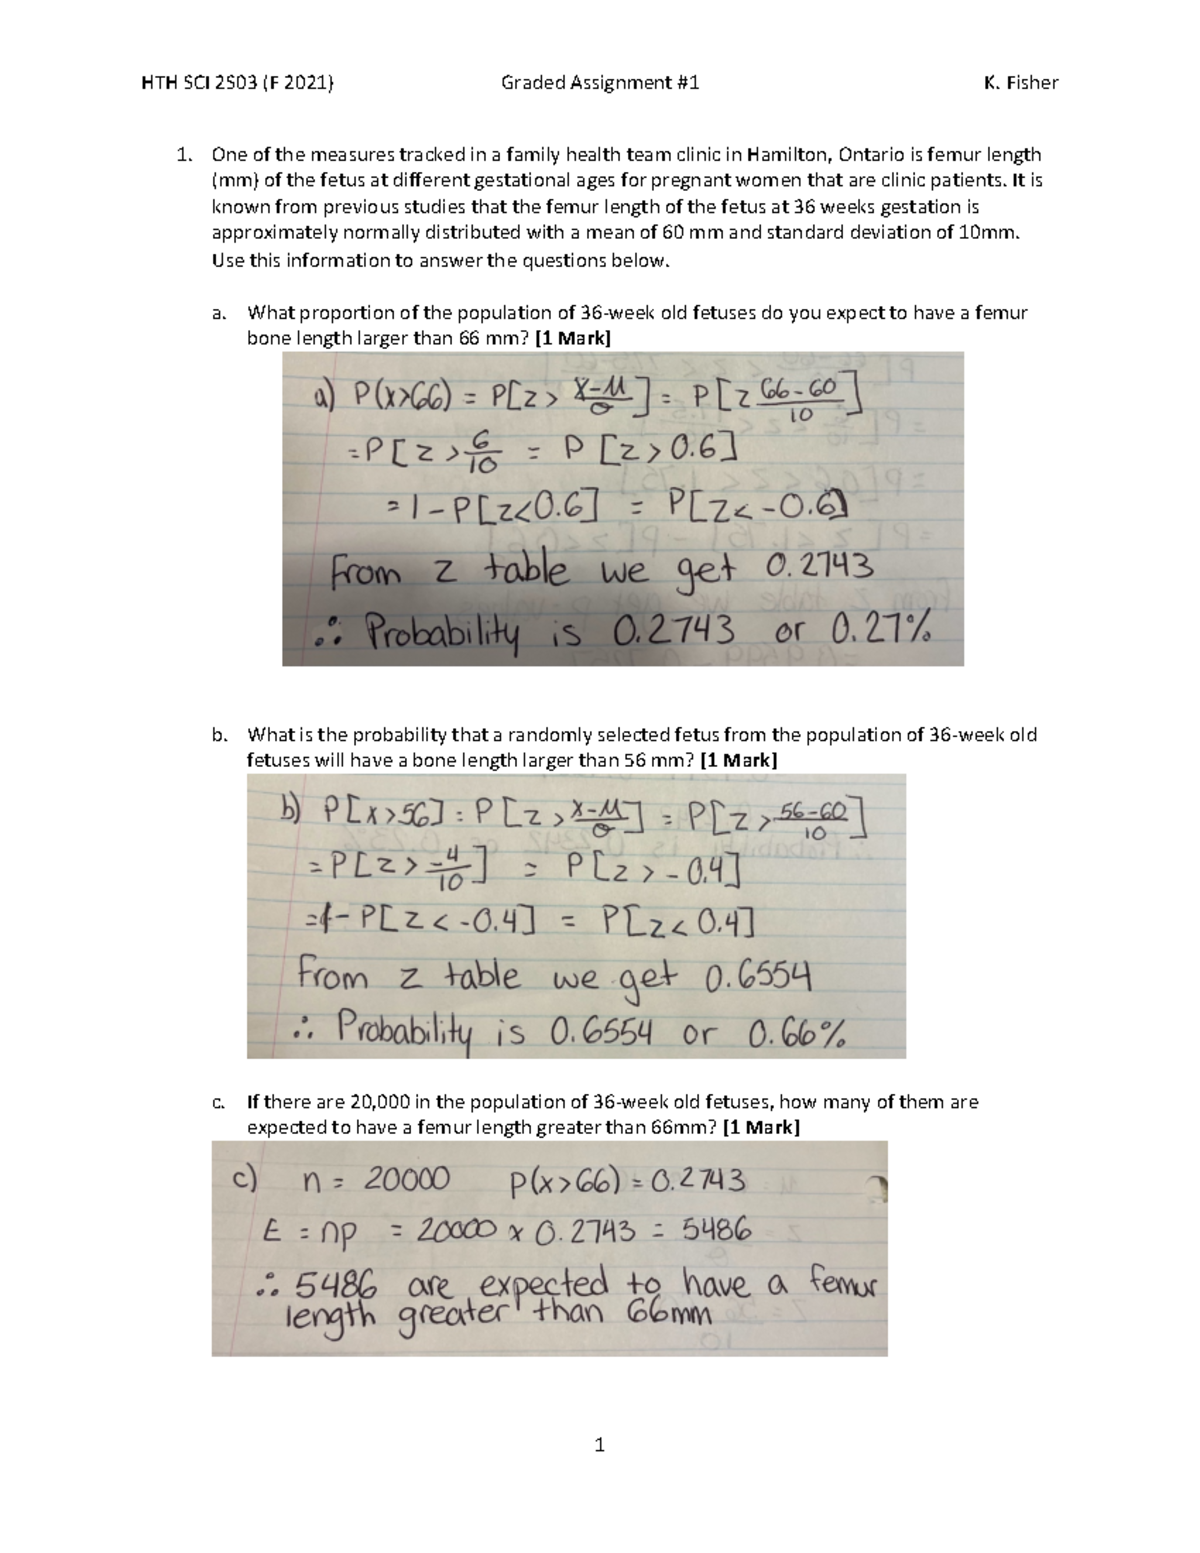 HTH SCI 2S03 (F 2021) Graded Assignment #1 K. Fisher
1. One of the measures tracked in a family health team clinic in Hamilton, Ontario is femur length
(mm) of the fetus at different gestational ages for pregnant women that are clinic patients. It is
known from previous studies that the femur length of the fetus at 36 weeks gestation is
approximately normally distributed with a mean of 60 mm and standard deviation of 10mm.
Use this information to answer the questions below.
a. What proportion of the population of 36-week old fetuses do you expect to have a femur
bone length larger than 66 mm? [1 Mark]
a) P(x>66) = P[z > x-μ/σ] = P[z 66-60/10]
= P[z > 6/10 = P [z > 0.6]
= 1 - P[z<0.6] = P[z < -0.6)
From z table we get 0.2743
∴ Probability is 0.2743 or 0.27%
b. What is the probability that a randomly selected fetus from the population of 36-week old
fetuses will have a bone length larger than 56 mm? [1 Mark]
b) P[x>56] = P[z > x-μ/σ] = P[z > 56-60/10]
= P[z > -4/10] = P[z > -0.4]
= 1 - P[z < -0.4] = P[z < 0.4]
From z table we get 0.6554
∴ Probability is 0.6554 or 0.66%
c. If there are 20,000 in the population of 36-week old fetuses, how many of them are
expected to have a femur length greater than 66mm? [1 Mark]
c) n = 20000 P(x>66) = 0.2743
E = np = 20000 x 0.2743 = 5486
∴ 5486 are expected to have a femur
length greater than 66mm
1